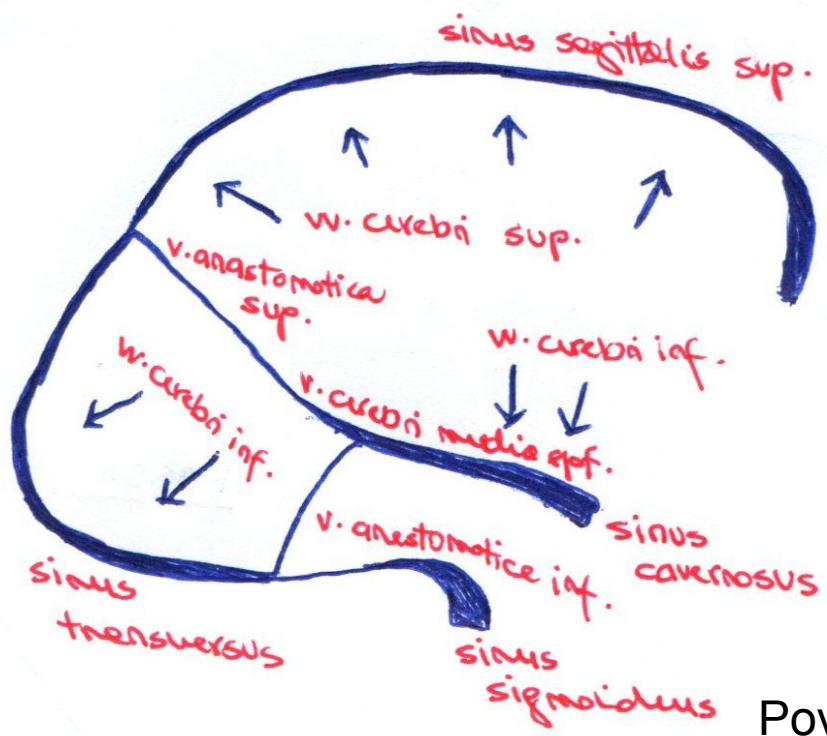 sinus sagittalis sup.
vv. cerebri sup.
v. anastomotica
sup.
vv. cerebri inf.
vv. cerebri inf.
v. cerebri media spf.
v. anastomotica inf.
sinus
cavernosus
sinus
transversus
sinus
sigmoideus
Pov